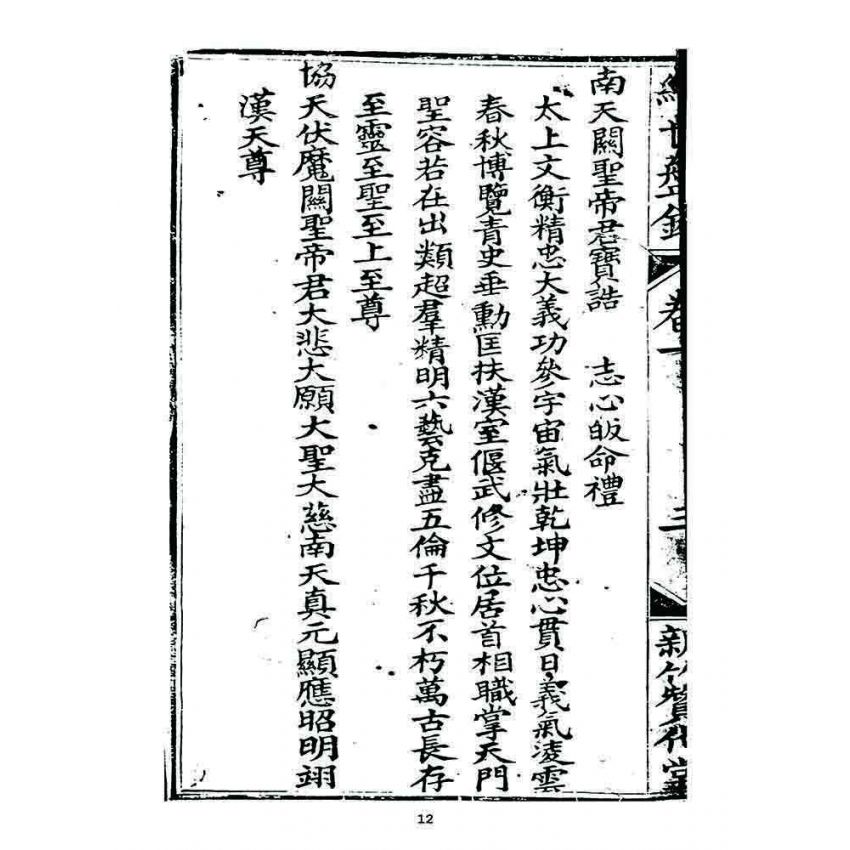 南天關聖帝君寶誥　志心皈命禮
太上文衡精忠大義功參宇宙氣壯乾坤忠心貫日義氣凌雲
春秋博覽青史垂勳匡扶漢室偃武修文位居首相職掌天門
聖容若在出類超羣精明六藝克盡五倫千秋不朽萬古長存
至靈至聖至上至尊
協天伏魔關聖帝君大悲大願大聖大慈南天真元顯應昭明翊
漢天尊
卷一
三
新竹贊化堂
12